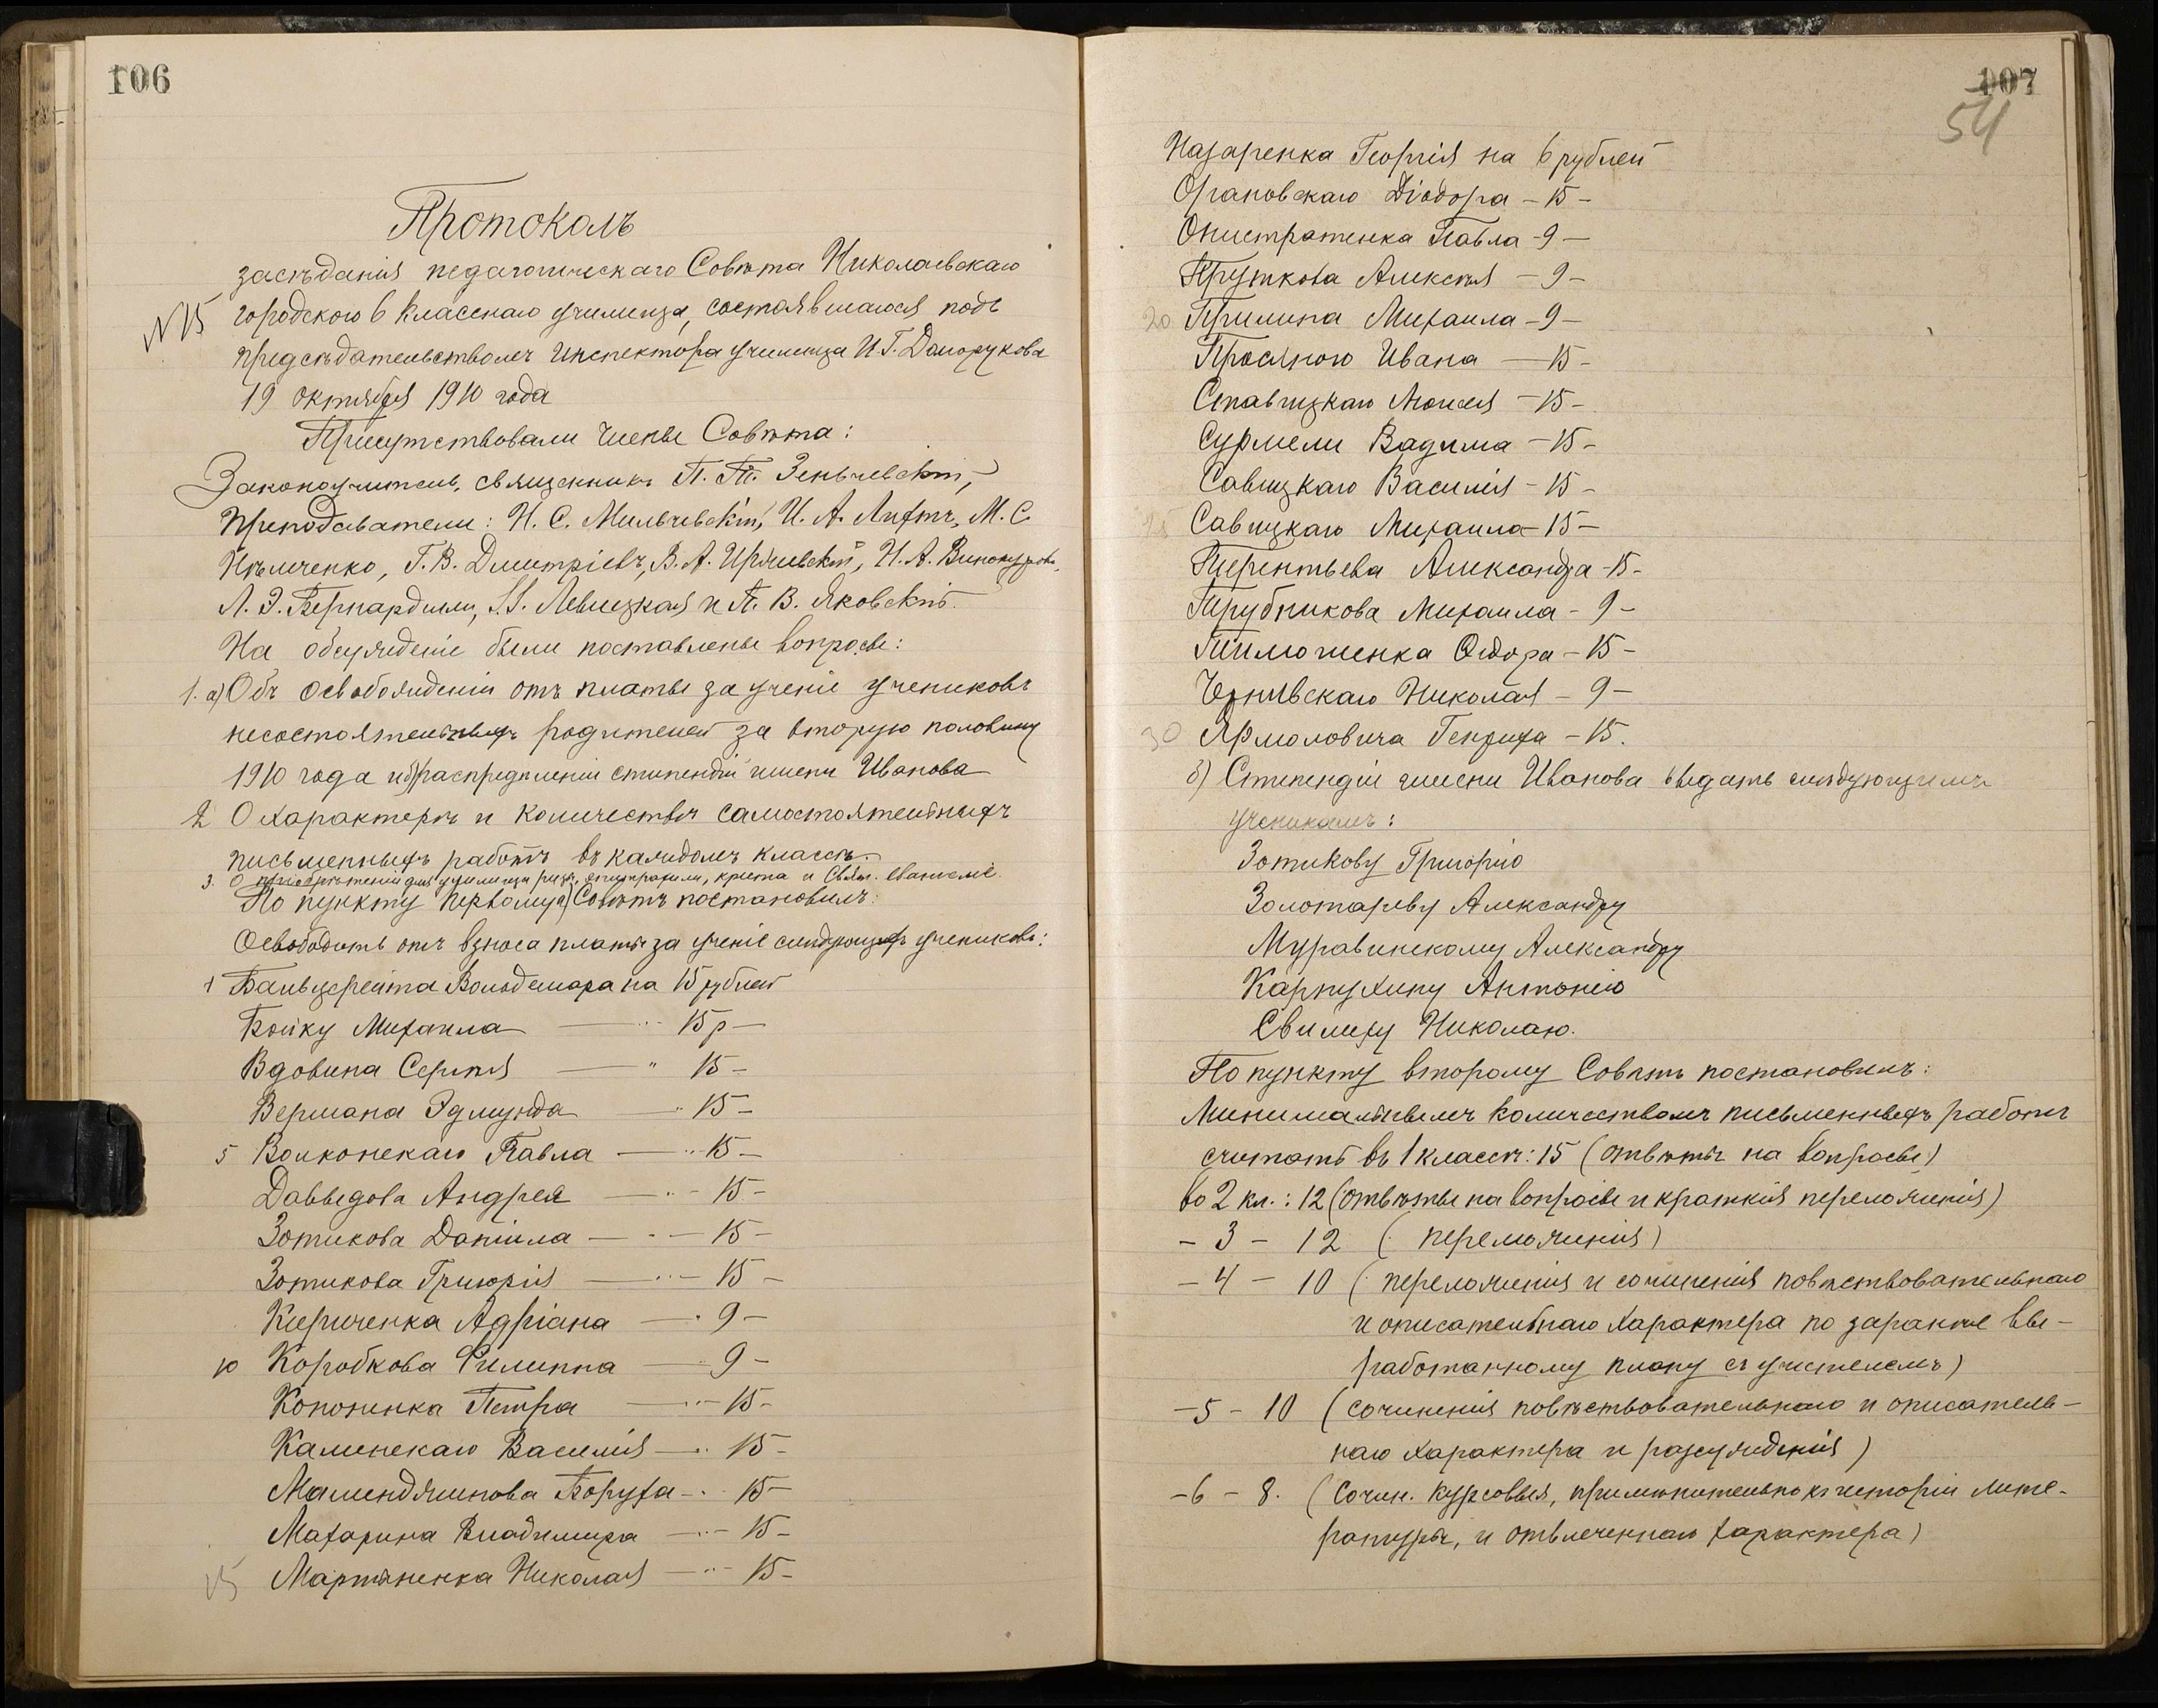 106
Протоколъ
засѣданія педагогическаго Совѣта Николаевскаго
№ 15 городского 6 класснаго училища, состоявшагося подъ
предсѣдательствомъ инспектора училища И. Г. Доморукова
19 октября 1910 года
Присутствовали члены Совѣта:
Законоучитель, священникъ П. П. Зеньчевскій,
преподаватели: Н. С. Мильчевскій, И. А. Лифтъ, М. С.
Ильченко, Г. В. Дмитріевъ, В. А. Ирчиевскій, Н. А. Винокуровъ,
Л. Э. Бернардини, Левицкая и П. В. Яковскій.
На обсужденіе были поставлены вопросы:
1. а) Объ освобожденіи отъ платы за ученіе учениковъ
несостоятельныхъ родителей за вторую половину
1910 года и б) распредѣленіи стипендій имени Иванова
2 О характерѣ и количествѣ самостоятельныхъ
письменныхъ работъ въ каждомъ классѣ.
3. О приобрѣтеніи для училища ризъ, епитрахили, креста и Свящ. евангеліе.
По пункту первому а) Совѣтъ постановилъ:
Освободить отъ взноса платы за ученіе слѣдующихъ учениковъ:
1 Бальцерейта Вольдемара на 15 рублей
Бойку Михаила — " — 15 р —
Вдовина Сергѣя — " 15 —
Вермана Эдмунда — " 15 —
5 Волконскаго Павла — " 15 —
Давыдова Андрея — " — 15 —
Зотикова Даніила — " — 15 —
Зотикова Григорія — " — 15 —
Кириченка Адріана — " 9 —
10 Коробкова Филиппа — " 9 —
Кононенка Петра — " — 15 —
Калинскаго Василія — " 15 —
Мамиджинова Боруха — " 15 —
Махарина Владимира — " — 15 —
15 Мартыненка Николая — " — 15 —
107
54
Назаренка Георгія на 6 рублей
Орановскаго Діодора — 15 —
Онистратенка Павла — 9 —
Пруткова Алексѣя — 9 —
20 Прилипа Михаила — 9 —
Просяного Ивана — 15 —
Ставицкаго Моисея — 15 —
Сурмели Вадима — 15 —
Савицкаго Василія — 15 —
25 Савицкаго Михаила — 15 —
Терентьева Александра — 15 —
Трубникова Михаила — 9 —
Тимошенка Ѳедора — 15 —
Чернявскаго Николая — 9 —
30 Ярмоловича Генриха — 15.
б) Стипендіи имени Иванова выдать слѣдующимъ
ученикамъ:
Зотикову Григорію
Золотареву Александру
Муравинскому Александру
Карпухину Антонію
Свилиху Николаю.
По пункту второму Совѣтъ постановилъ:
Минимальнымъ количествомъ письменныхъ работъ
считать въ 1 классѣ: 15 (отвѣты на вопросы)
во 2 кл.: 12 (отвѣты на вопросы и краткія переложенія)
— 3 — 12 (переложенія)
— 4 — 10 (переложенія и сочиненія повѣствовательнаго
и описательнаго характера по заранѣе вы-
работанному плану съ учителемъ)
— 5 — 10 (сочиненія повѣствовательнаго и описатель-
наго характера и разсужденія)
— 6 — 8. (Сочин. курсовыя, примѣнительно къ исторіи лите-
ратуры, и отвлеченнаго характера)